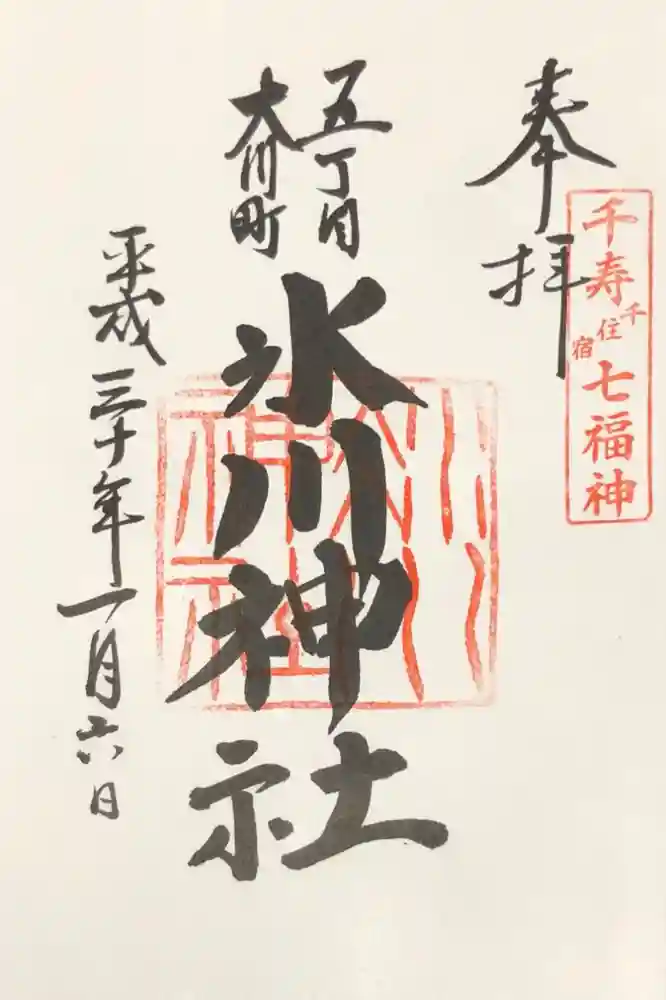 奉拝
千寿
千住宿
七福神
五丁目
大川町
氷川神社
平成三十年一月六日
氷川
神社